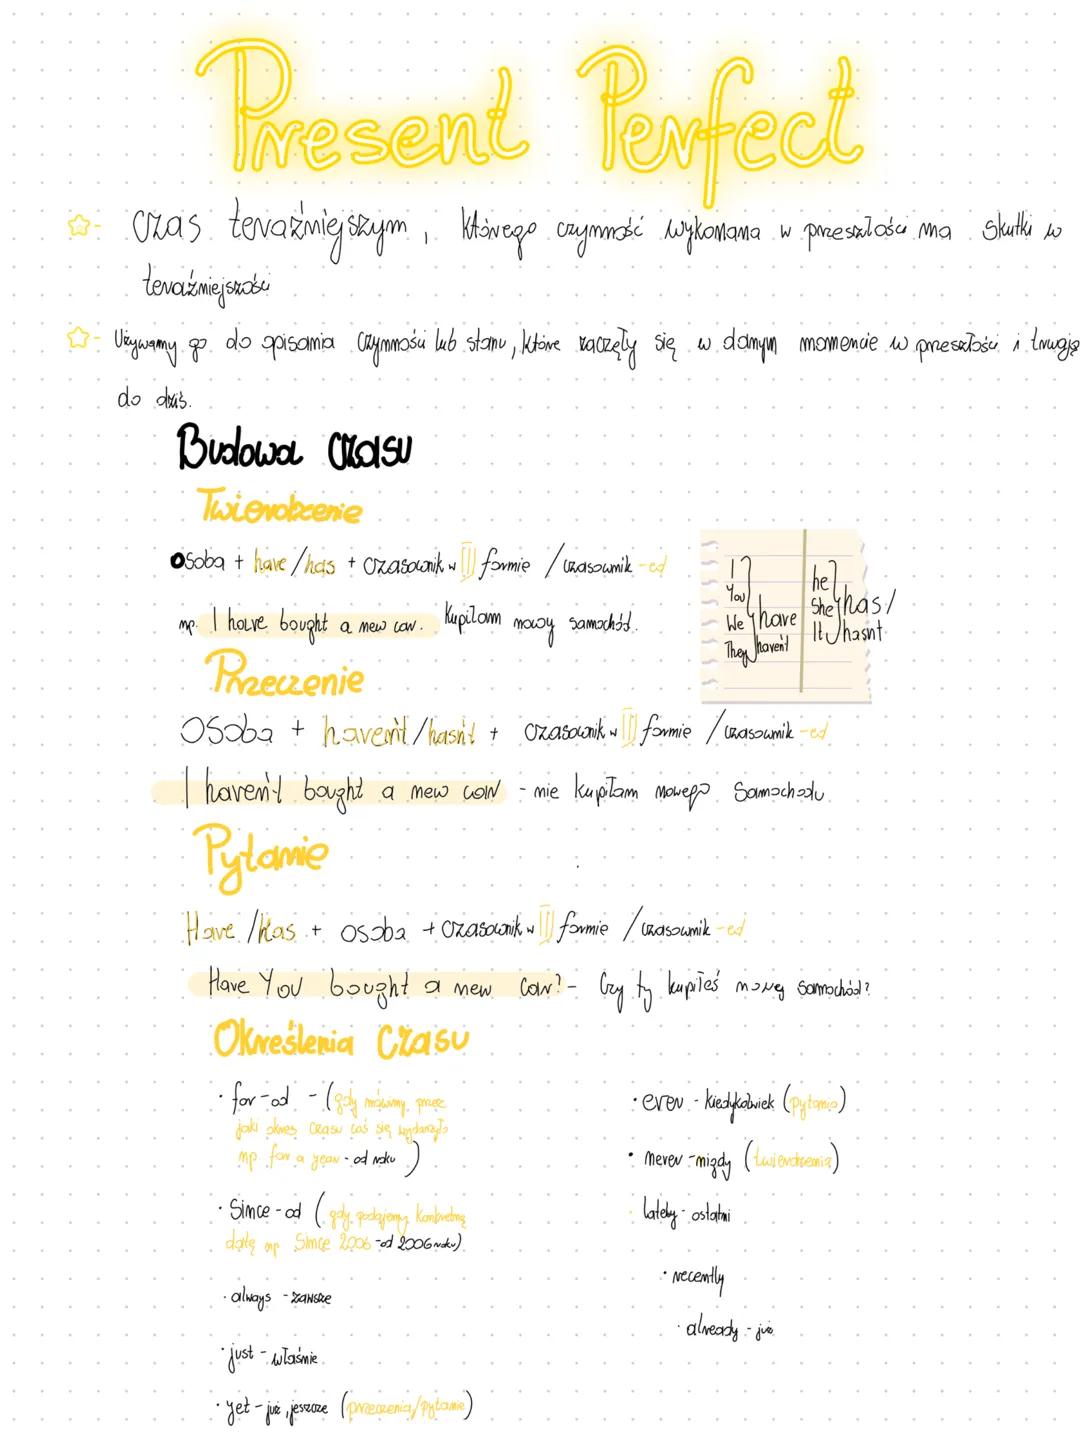 Present Perfect
- Czas teraźniejszym, którego czynność wykonana w przeszłości ma skutki w
teraźniejszości
- Używamy go do opisania czynności lub stanu, które zaczęły się w danym momencie w przeszłości i trwają
do dziś.
Budowa czasu
Twierdzenie
Osoba + have/has + czasownik w III formie / czasownik -ed
np. I have bought a new car. Kupiłam nowy samochód.
I
You
We
They
have
haven't
he
She
It
has/
hasnt
Przeczenie
osoba + haven't/hasn't + czasownik w III formie / czasownik -ed
I haven't bought a new car - nie kupiłam nowego samochodu
Pytanie
Have/Has + osoba + czasownik w III formie / czasownik -ed
Have You bought a new car? - Czy ty kupiłeś nowy samochód?
Określenia czasu
• for - od - (gdy mówimy przez
jaki okres czasu coś się wydarzyło
np for a year - od roku)
• Since - od (gdy podajemy konkretną
datę np Since 2006 - od 2006 roku)
• always - zawsze
• just - właśnie
• yet - już, jeszcze (przeczenia/pytanie)
• ever - kiedykolwiek (pytania)
• never - nigdy (twierdzenia)
• lately - ostatni
• recently
• already - już